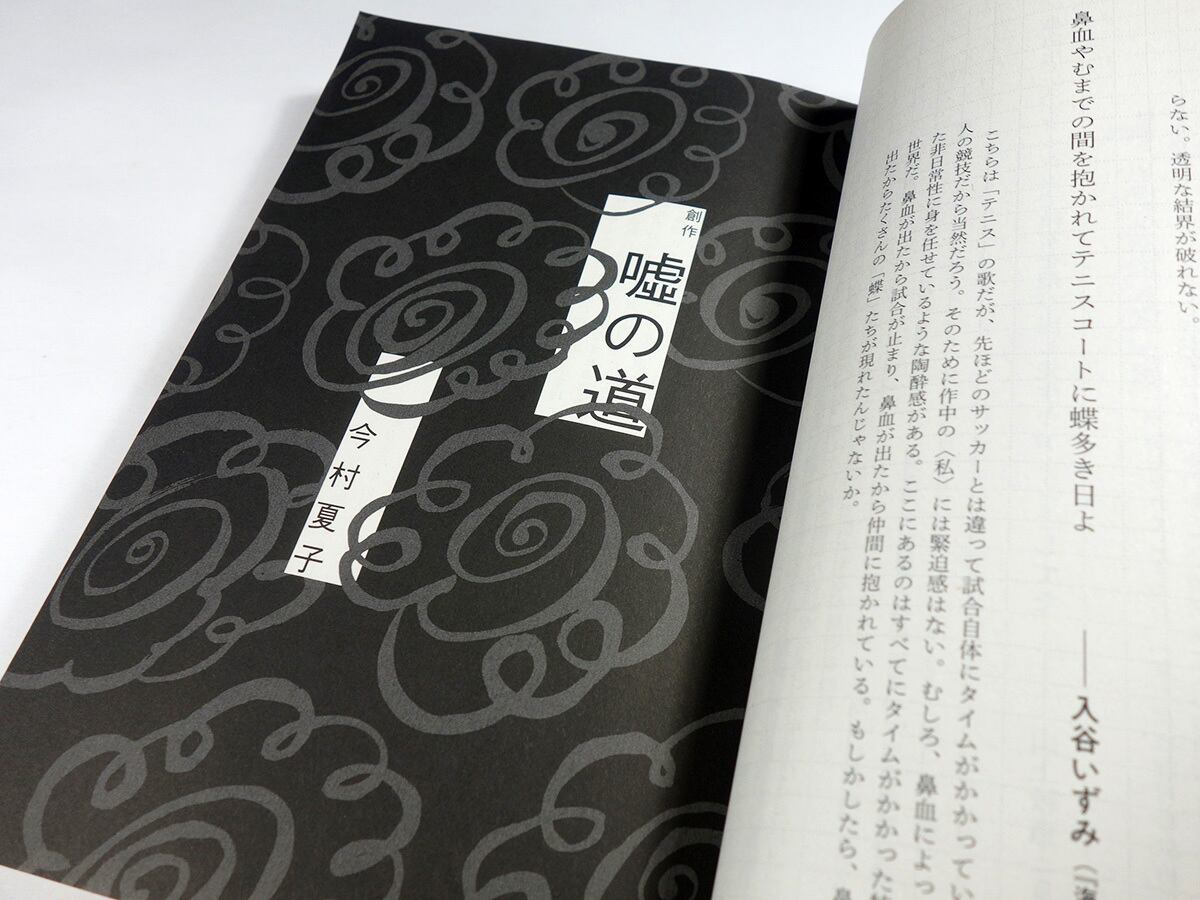 らない。透明な結界が破れない。
鼻血やむまでの間を抱かれてテニスコートに蝶多き日よ ――入谷いずみ（『海
こちらは「テニス」の歌だが、先ほどのサッカーとは違って試合自体にタイムがかかってい
人の競技だから当然だろう。そのために作中の〈私〉には緊迫感はない。むしろ、鼻血によっ
た非日常性に身を任せているような陶酔感がある。ここにあるのはすべてにタイムがかかった
世界だ。鼻血が出たから試合が止まり、鼻血が出たから仲間に抱かれている。もしかしたら、鼻
出たからたくさんの「蝶」たちが現れたんじゃないか。
創作
嘘の道
今村夏子